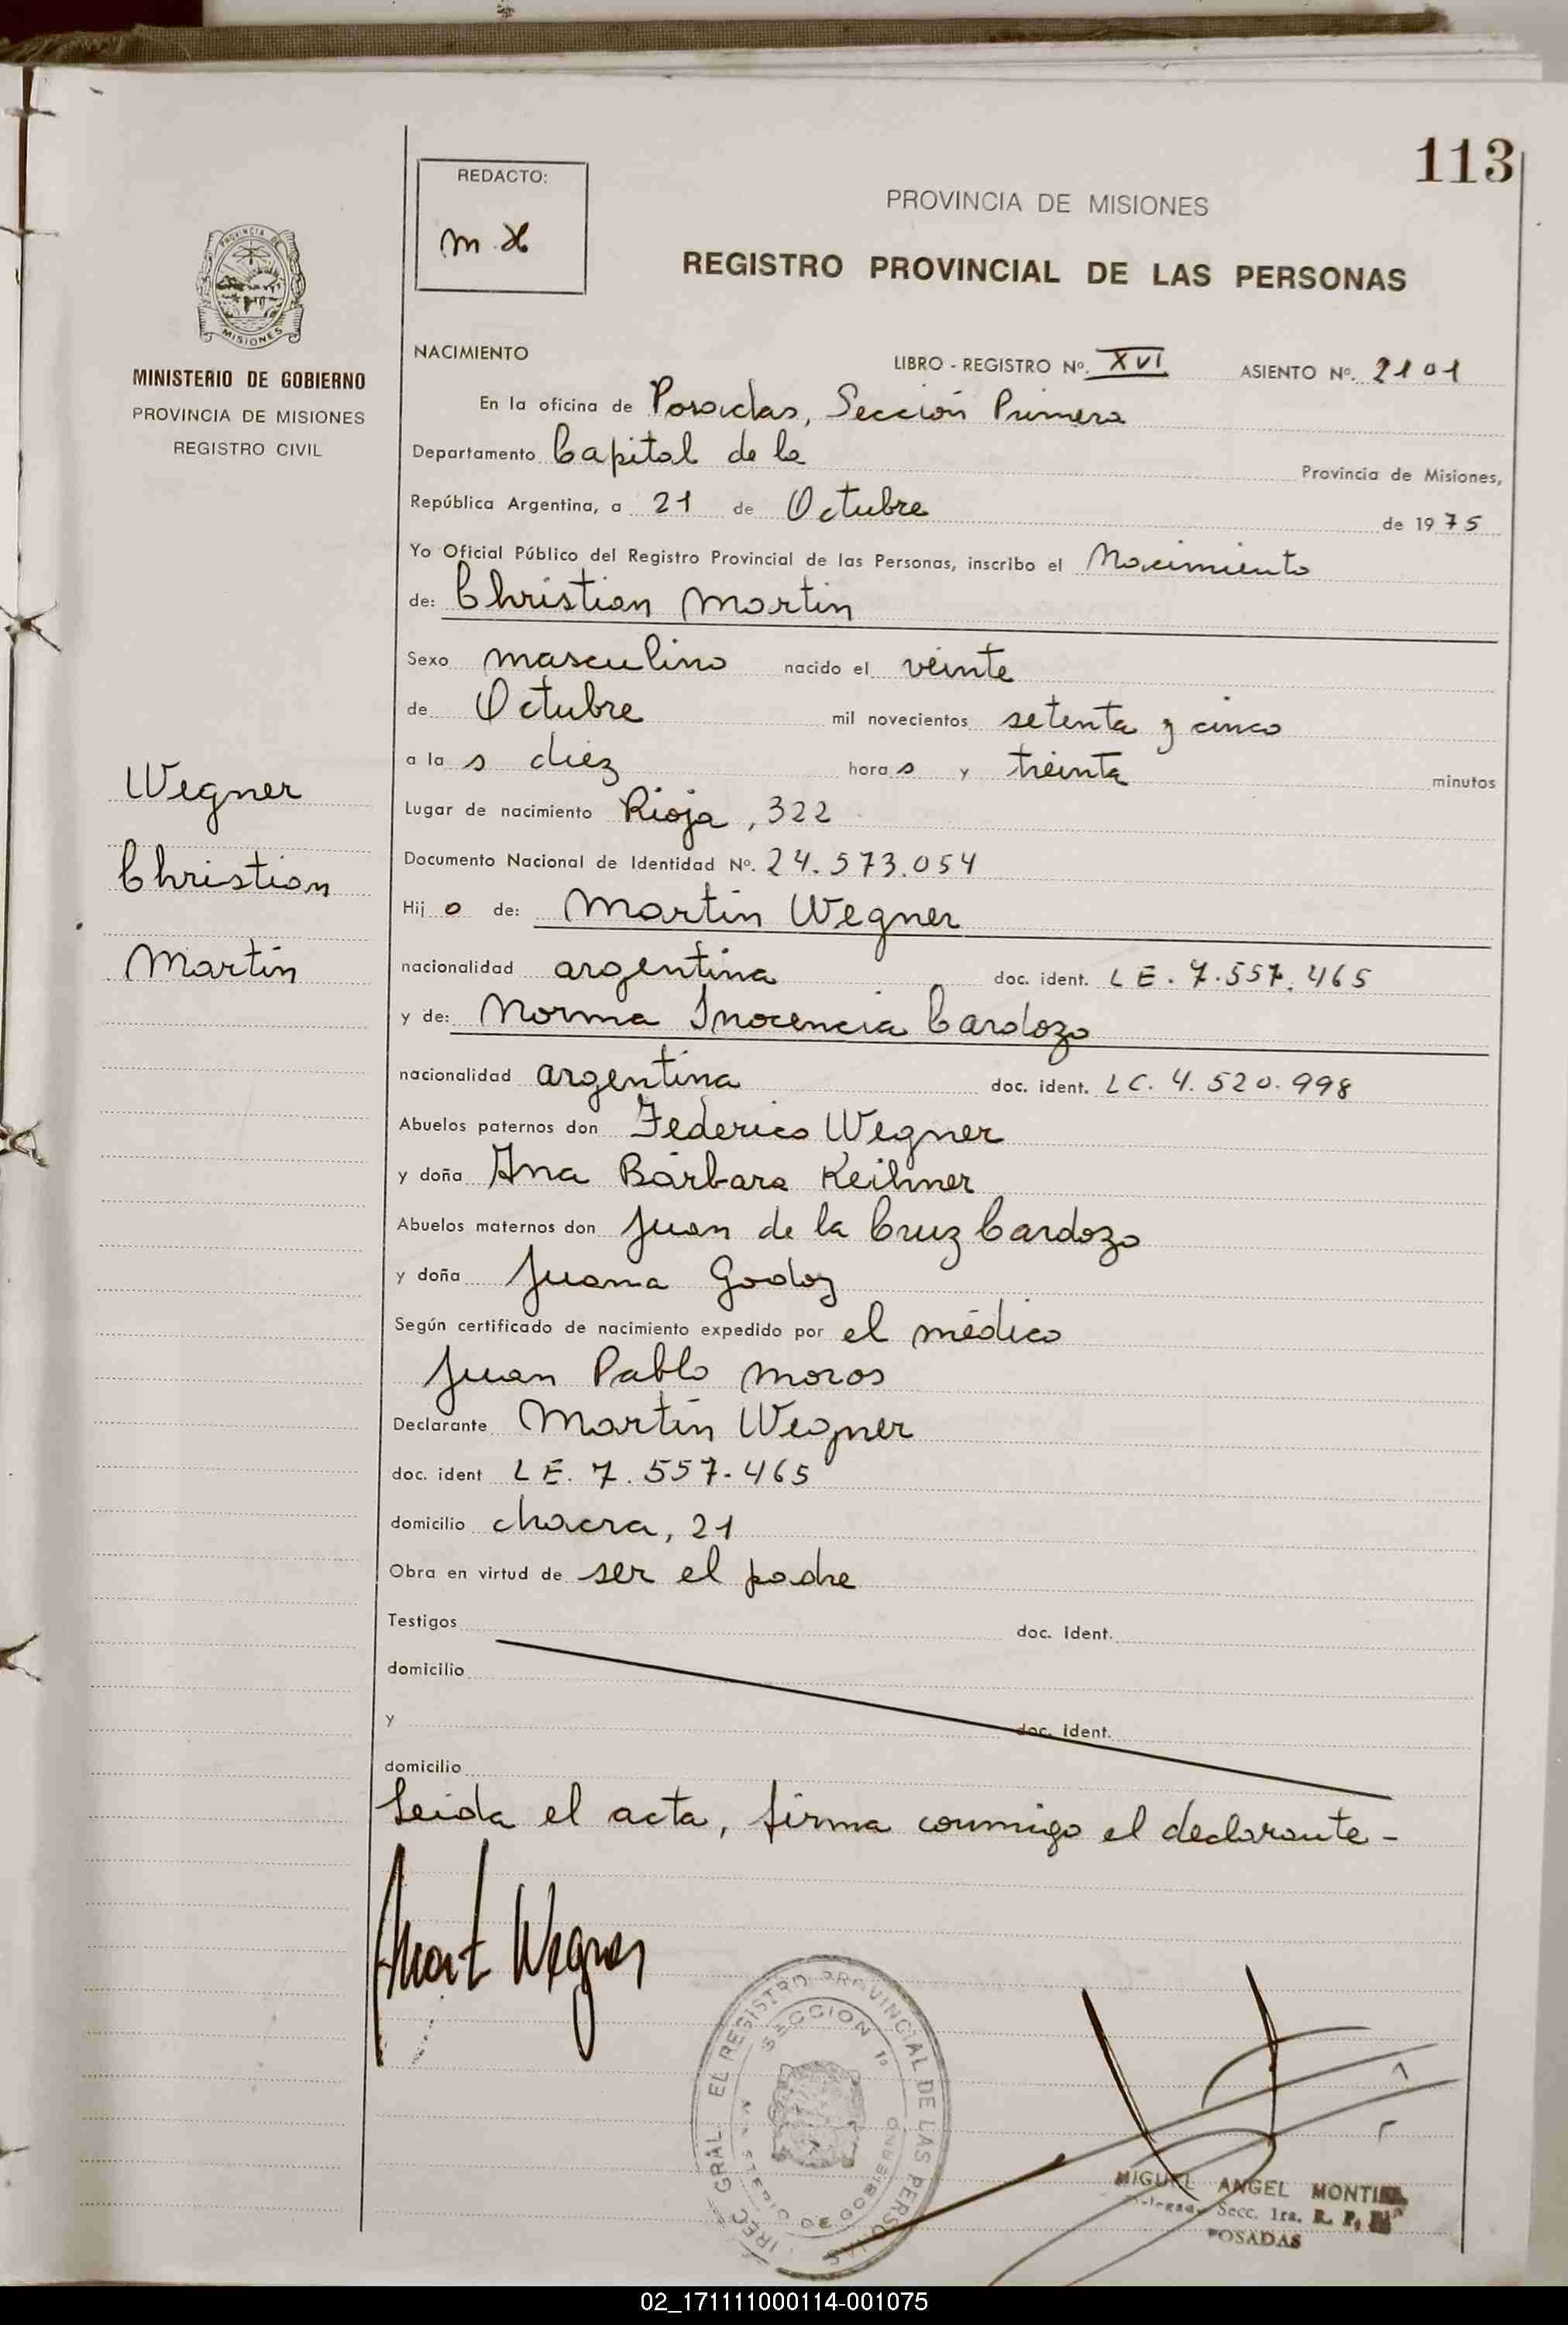 113
REDACTO:
m.H
PROVINCIA DE MISIONES
REGISTRO PROVINCIAL DE LAS PERSONAS
PROVINCIA DE
MISIONES
MINISTERIO DE GOBIERNO
PROVINCIA DE MISIONES
REGISTRO CIVIL
Wegner
Christian
Martin
NACIMIENTO LIBRO - REGISTRO Nº. XVI ASIENTO Nº. 2101
En la oficina de Posadas, Sección Primera
Departamento Capital de la Provincia de Misiones,
República Argentina, a 21 de Octubre de 1975
Yo Oficial Público del Registro Provincial de las Personas, inscribo el Nacimiento
de: Christian Martin
Sexo masculino nacido el veinte
de Octubre mil novecientos setenta y cinco
a la s diez hora s y treinta minutos
Lugar de nacimiento Rioja, 322
Documento Nacional de Identidad Nº. 24.573.054
Hij o de: Martin Wegner
nacionalidad argentina doc. ident. LE. 7.557.465
y de: Norma Inocencia Cardozo
nacionalidad argentina doc. ident. LC. 4.520.998
Abuelos paternos don Federico Wegner
y doña Ana Bárbara Keihner
Abuelos maternos don Juan de la Cruz Cardozo
y doña Juana Godoy
Según certificado de nacimiento expedido por el médico
Juan Pablo Moros
Declarante Martin Wegner
doc. ident LE. 7.557.465
domicilio chacra, 21
Obra en virtud de ser el padre
Testigos doc. Ident.
domicilio
y doc. Ident.
domicilio
Leida el acta, firma conmigo el declarante-
Mart Wegner
EL REGISTRO PROVINCIAL DE LAS PERSONAS
SECCION 1º
MINISTERIO DE GOBIERNO
MIGUEL ANGEL MONTIEL
Delegado Secc. 1ra. R. P.
POSADAS
02_171111000114-001075